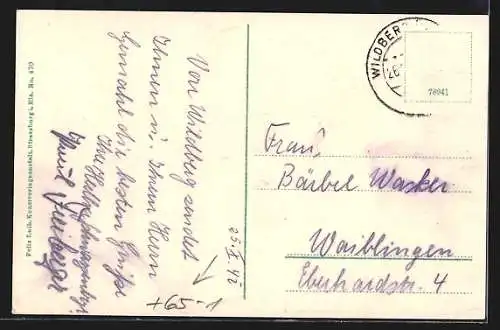 Von Wildberg sendet
Ihnen u. Ihrem Herrn
Gemahl die besten Grüße
Ihre
Paul
25. X. 42
+65-1
Felix Luib, Kunstverlagsanstalt, Strassburg i. Els. No. 470
WILDBERG
78041
Frau
Bärbel Wacker
Waiblingen
Eberhardstr. 4